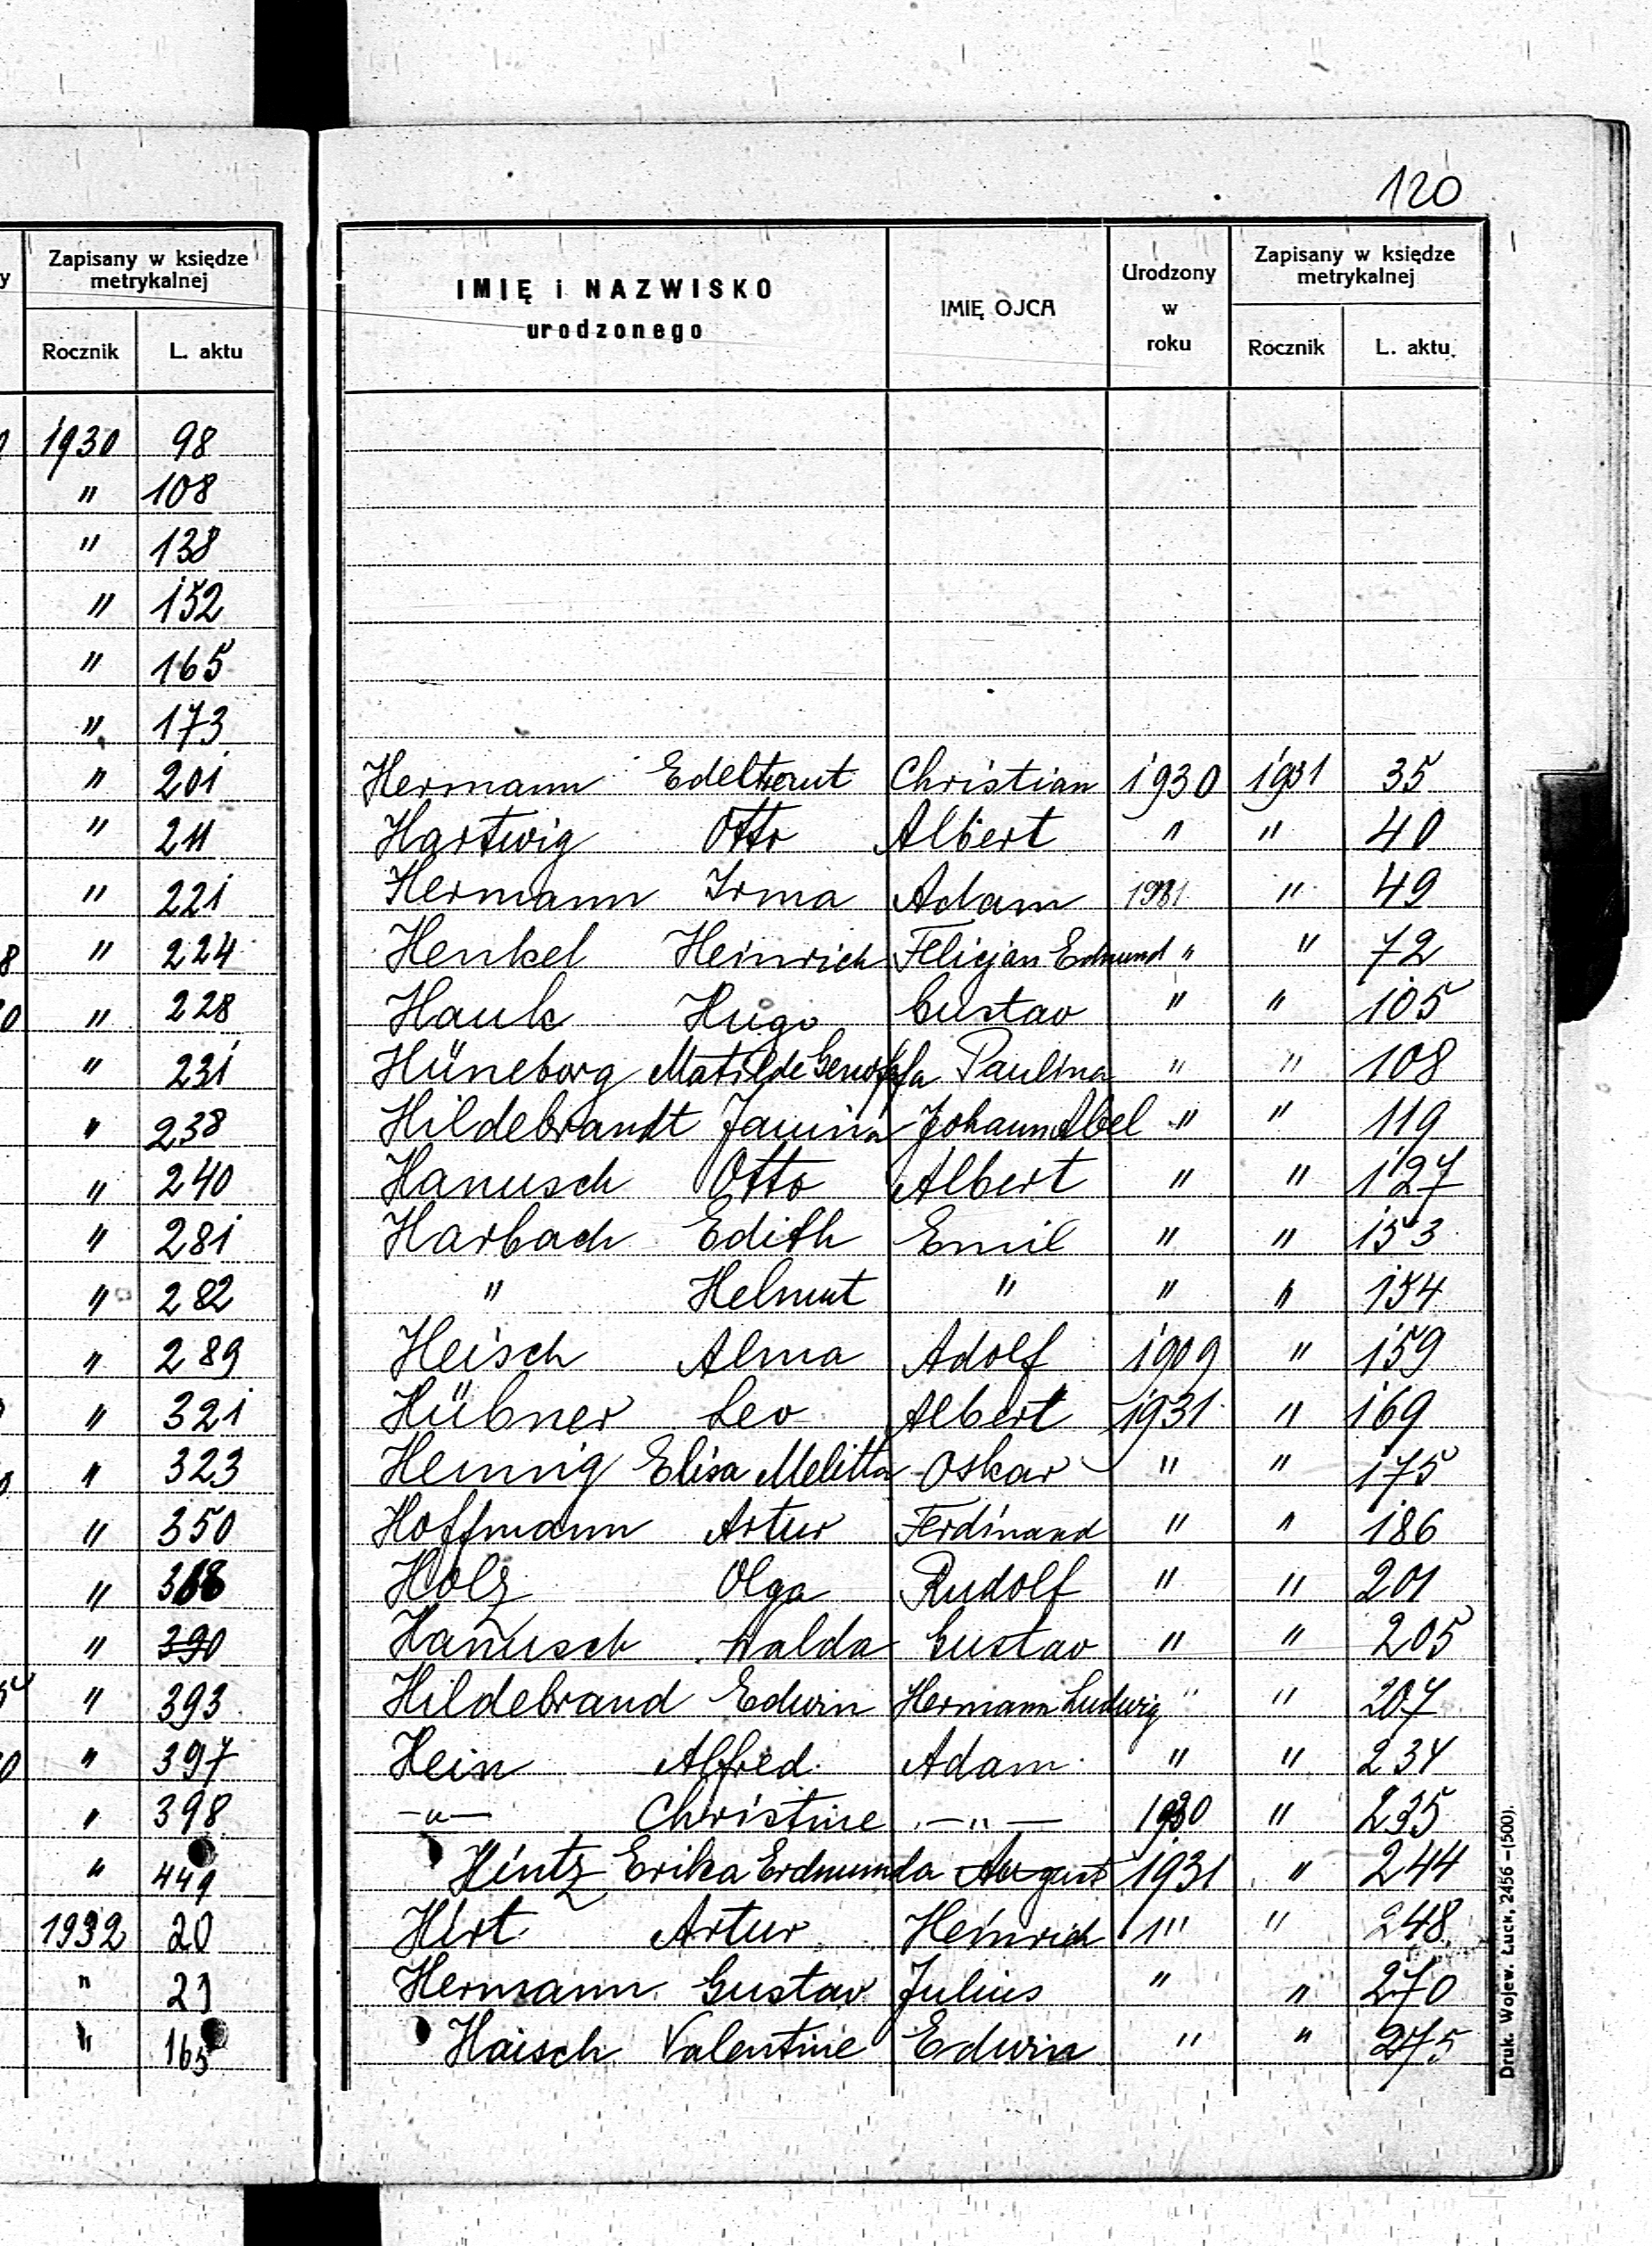 120
y
Zapisany w księdze metrykalnej
Rocznik L. aktu
1930 98
" 108
" 138
" 152
" 165
" 173
" 201
" 211
" 221
8 " 224
0 " 228
" 231
" 238
" 240
" 281
" 282
" 289
" 321
" 323
" 350
" 368
" 390
" 393
0 " 397
" 398
" 449
1932 20
" 21
" 165
IMIĘ i NAZWISKO urodzonego IMIĘ OJCA Urodzony w roku Zapisany w księdze metrykalnej
Rocznik L. aktu
Hermann Edeltraut Christian 1930 1931 35
Hartwig Otto Albert " " 40
Hermann Irma Adam 1931 " 49
Henkel Heinrich Felicjan Edmund " " 72
Hauk Hugo Gustav " " 105
Hüneborg Matilde Genofefa Paulina " " 108
Hildebrandt Janina Johann Abel " " 119
Hanusch Otto Albert " " 127
Harbach Edith Emil " " 153
" Helmut " " " 154
Heisch Alma Adolf 1909 " 159
Hübner Leo Albert 1931 " 169
Hennig Elisa Melitta Oskar " " 175
Hoffmann Artur Ferdinand " " 186
Holz Olga Rudolf " " 201
Hanusch Walda Gustav " " 205
Hildebrand Edwin Hermann Ludwig " " 207
Hein Alfred Adam " " 234
—"— Christine —"— 1930 " 235
Hintz Erika Erdmunda August 1931 " 244
Hirt Artur Heinrich " " 248
Hermann Gustav Julius " " 270
Haisch Valentine Edwin " " 275
Druk. Wojew. Łuck, 2456 —(500).